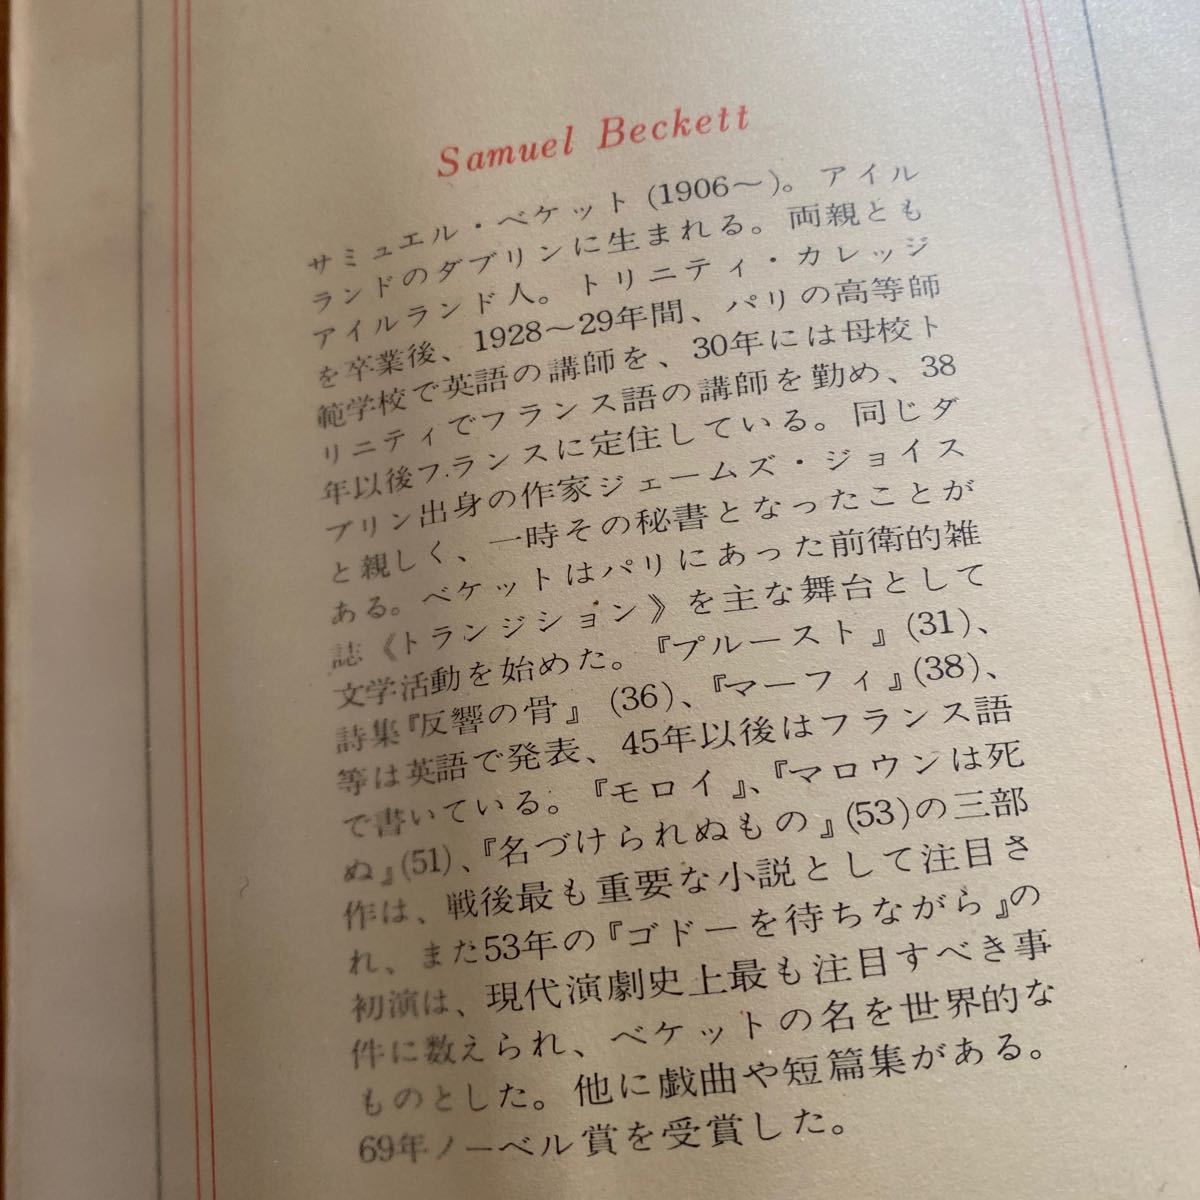 Samuel Beckett
サミュエル・ベケット(1906〜)。アイル
ランドのダブリンに生まれる。両親とも
アイルランド人。トリニティ・カレッジ
を卒業後、1928〜29年間、パリの高等師
範学校で英語の講師を、30年には母校ト
リニティでフランス語の講師を勤め、38
年以後フランスに定住している。同じダ
ブリン出身の作家ジェームズ・ジョイス
と親しく、一時その秘書となったことが
ある。ベケットはパリにあった前衛的雑
誌《トランジション》を主な舞台として
文学活動を始めた。『プルースト』(31)、
詩集『反響の骨』(36)、『マーフィ』(38)、
等は英語で発表、45年以後はフランス語
で書いている。『モロイ』、『マロウンは死
ぬ』(51)、『名づけられぬもの』(53)の三部
作は、戦後最も重要な小説として注目さ
れ、また53年の『ゴドーを待ちながら』の
初演は、現代演劇史上最も注目すべき事
件に数えられ、ベケットの名を世界的な
ものとした。他に戯曲や短篇集がある。
69年ノーベル賞を受賞した。